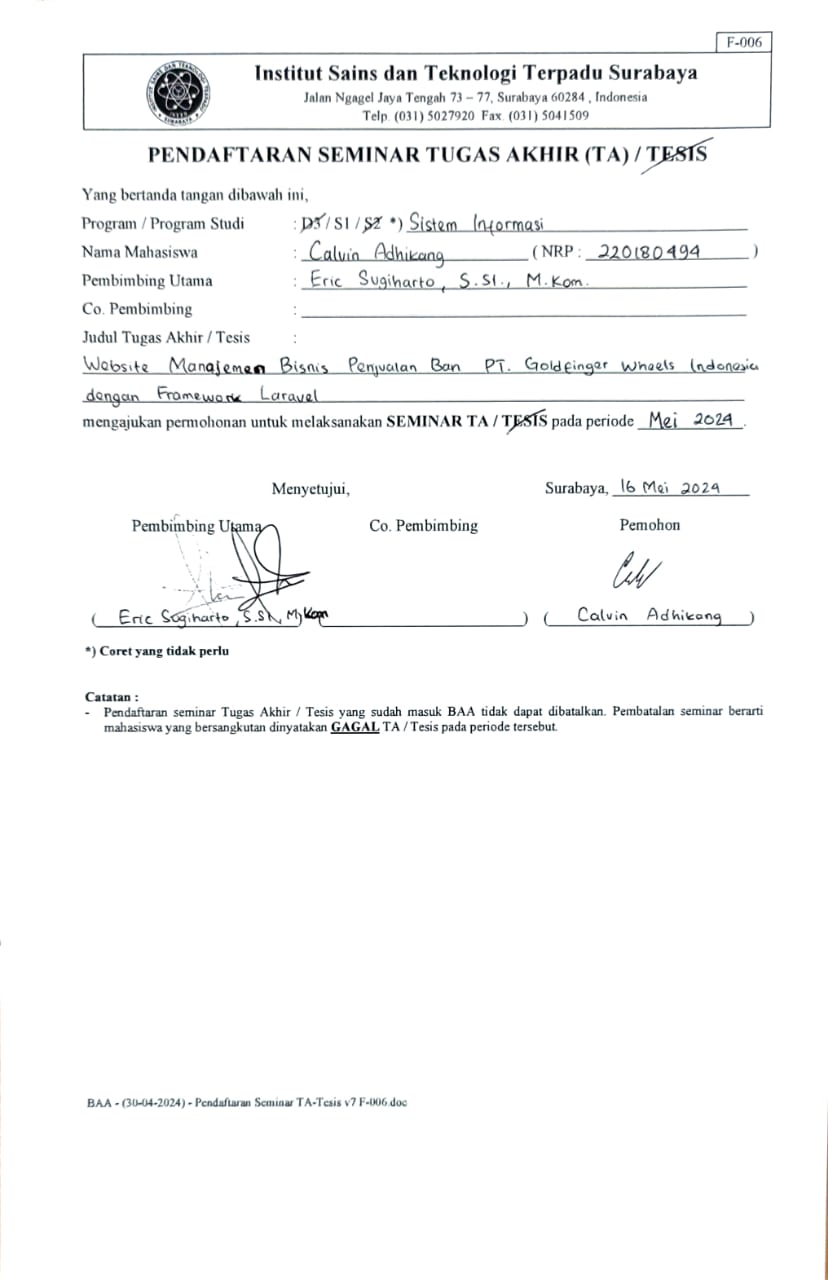 F-006
Institut Sains dan Teknologi Terpadu Surabaya
Jalan Ngagel Jaya Tengah 73 – 77, Surabaya 60284 , Indonesia
Telp. (031) 5027920 Fax. (031) 5041509
PENDAFTARAN SEMINAR TUGAS AKHIR (TA) / TESIS
Yang bertanda tangan dibawah ini,
Program / Program Studi : D3 / S1 / S2 *) Sistem Informasi
Nama Mahasiswa : Calvin Adhikang ( NRP : 220180494 )
Pembimbing Utama : Eric Sugiharto, S.SI., M.Kom.
Co. Pembimbing :
Judul Tugas Akhir / Tesis :
Website Manajemen Bisnis Penjualan Ban PT. Goldfinger Wheels Indonesia
dengan Framework Laravel
mengajukan permohonan untuk melaksanakan SEMINAR TA / TESIS pada periode Mei 2024 .
Menyetujui, Surabaya, 16 Mei 2024
Pembimbing Utama Co. Pembimbing Pemohon
( Eric Sugiharto, S.SI, M.Kom ) ( Calvin Adhikang )
*) Coret yang tidak perlu
Catatan :
- Pendaftaran seminar Tugas Akhir / Tesis yang sudah masuk BAA tidak dapat dibatalkan. Pembatalan seminar berarti
mahasiswa yang bersangkutan dinyatakan GAGAL TA / Tesis pada periode tersebut.
BAA - (30-04-2024) - Pendaftaran Seminar TA-Tesis v7 F-006.doc